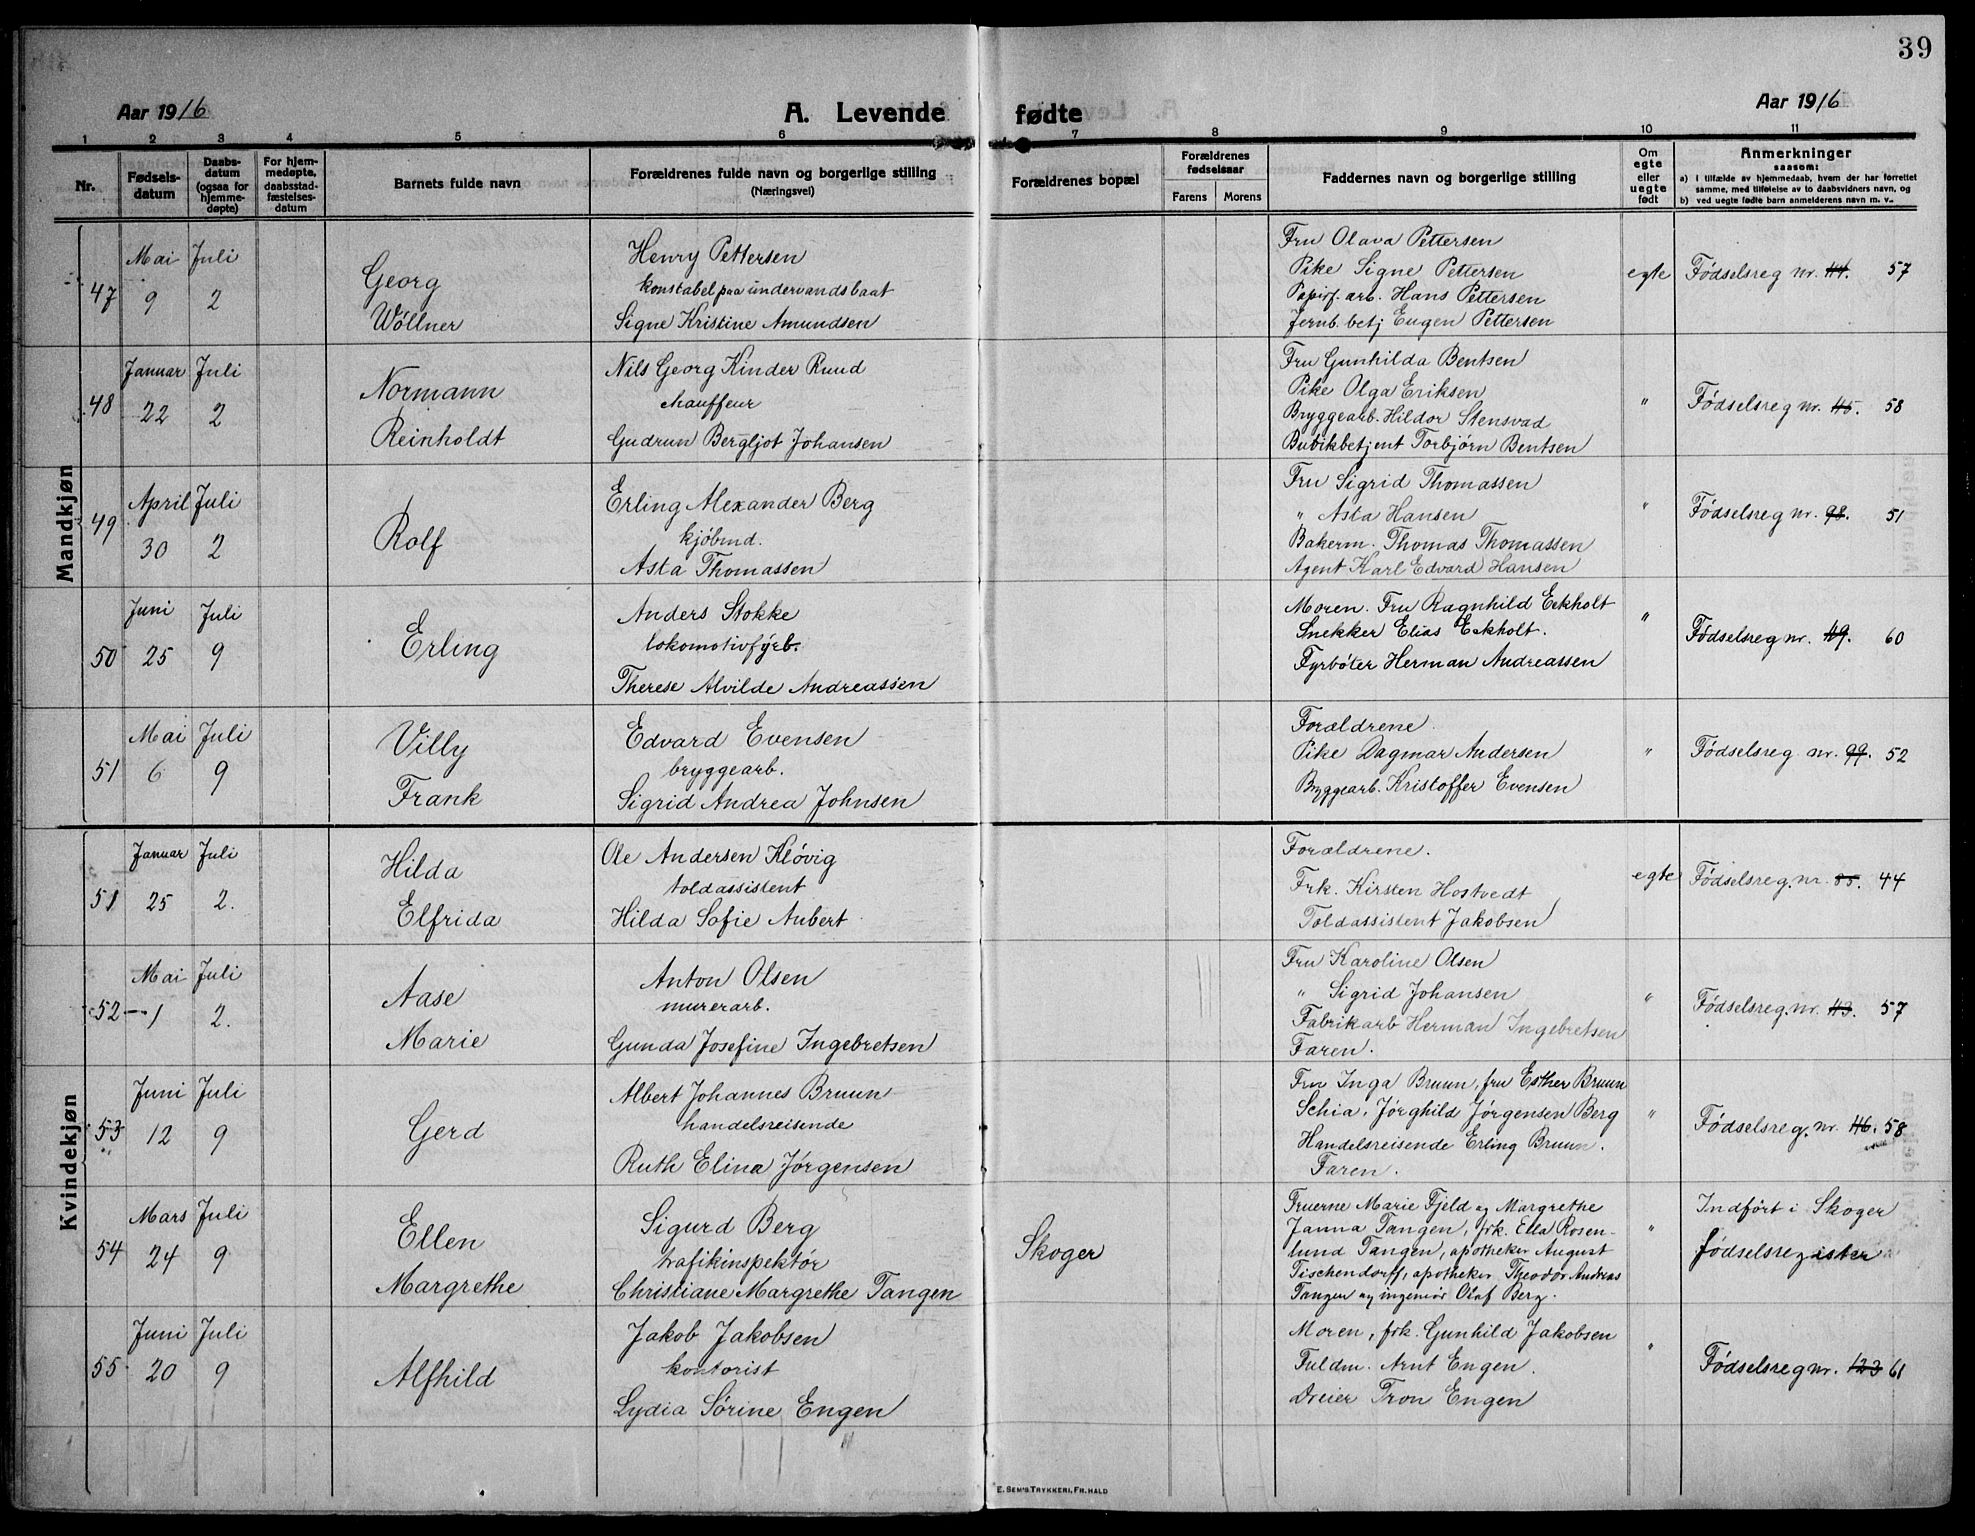 39
Aar 1916
A. Levende fødte
Aar 1916
1 2 3 4 5 6 7 8 9 10 11
Nr.
Fødselsdatum
Daabsdatum (ogsaa for hjemmedøpte)
For hjemmedøpte, daabsstadfæstelsesdatum
Barnets fulde navn
Forældrenes fulde navn og borgerlige stilling
(Næringsvei)
Forældrenes bopæl
Forældrenes fødselsaar
Farens
Morens
Faddernes navn og borgerlige stilling
Om egte eller uegte født
Anmerkninger
saasom:
a) i tilfælde av hjemmedaab, hvem der har forrettet samme, med tilføielse av to daabsvidners navn, og
b) ved uegte fødte barn anmelderens navn m. v.
Mandkjøn
47
Mai 9
Juli 2
Georg
Wöllner
Henry Pettersen
konstabel paa undervandsbaat
Signe Kristine Amundsen
Fru Olava Pettersen
Pike Signe Pettersen
Papirf. arb. Hans Pettersen
Jernb. betj Eugen Pettersen
egte
Fødselsreg nr. 44. 57
48
Januar 22
Juli 2
Normann
Reinholdt
Nils Georg Kinder Ruud
chauffeur
Gudrun Bergljot Johansen
Fru Gunhilda Bentsen
Pike Olga Eriksen
Bryggearb. Hildor Stensvad
Butikbetjent Torbjørn Bentsen
"
Fødselsreg nr. 45. 58
49
April 30
Juli 2
Rolf
Erling Alexander Berg
kjøbmd.
Asta Thomassen
Fru Sigrid Thomassen
" Asta Hansen
Bakerm. Thomas Thomassen
Agent Karl Edvard Hansen
"
Fødselsreg nr. 98. 51
50
Juni 25
Juli 9
Erling
Anders Stokke
lokomotivfyrb.
Therese Alvilde Andreassen
Moren. Fru Ragnhild Eckholt
Snekker Elias Eckholt.
Fyrbøter Herman Andreassen
"
Fødselsreg nr. 49. 60
51
Mai 6
Juli 9
Villy
Frank
Edvard Evensen
bryggearb.
Sigrid Andrea Johnsen
Forældrene.
Pike Dagmar Andersen
Byggearb. Kristoffer Evensen
"
Fødselsreg nr. 99. 52
Kvindekjøn
51
Januar 25
Juli 2.
Hilda
Elfrida
Ole Andersen Kløvig
toldassistent
Hilda Sofie Aubert
Forældrene.
Frk. Kirsten Hostvedt
Toldassistent Jakobsen
egte
Fødselsreg. nr. 85. 44
52
Mai 1
Juli 2.
Aase
Marie
Anton Olsen
murerarb.
Gunda Josefine Ingebretsen
Fru Karoline Olsen
" Sigrid Johansen
Fabrikarb Herman Ingebretsen
Faren.
"
Fødselsreg. nr. 43. 57
53
Juni 12
Juli 9
Gerd
Albert Johannes Bruun
handelsreisende
Ruth Elina Jørgensen
Fru Inga Bruun, fru Esther Bruun
Schia, Jørghild Jørgensen Berg
Handelsreisende Erling Bruun.
Faren.
"
Fødselsreg. nr. 46. 58
54
Mars 24
Juli 9
Ellen
Margrethe
Sigurd Berg
trafikinspektør
Christiane Margrethe Tangen
Skoger
Fruerne Marie Fjeld og Margrethe
Janna Tangen, frk. Ella Rosen-
lund Tangen, apotheker August
Tischendorff, apotheker Theodor Andreas
Tangen og ingeniør Olaf Berg.
"
Indført i Skoger
fødselsregister
55
Juni 20
Juli 9
Alfhild
Jakob Jakobsen
kontorist
Lydia Sørine Engen
Moren, frk. Gunhild Jakobsen
Fuldm. Arnt Engen.
Dreier Tron Engen
"
Fødselsreg nr. 123 61
E. SEM'S TRYKKERI, FR.HALD